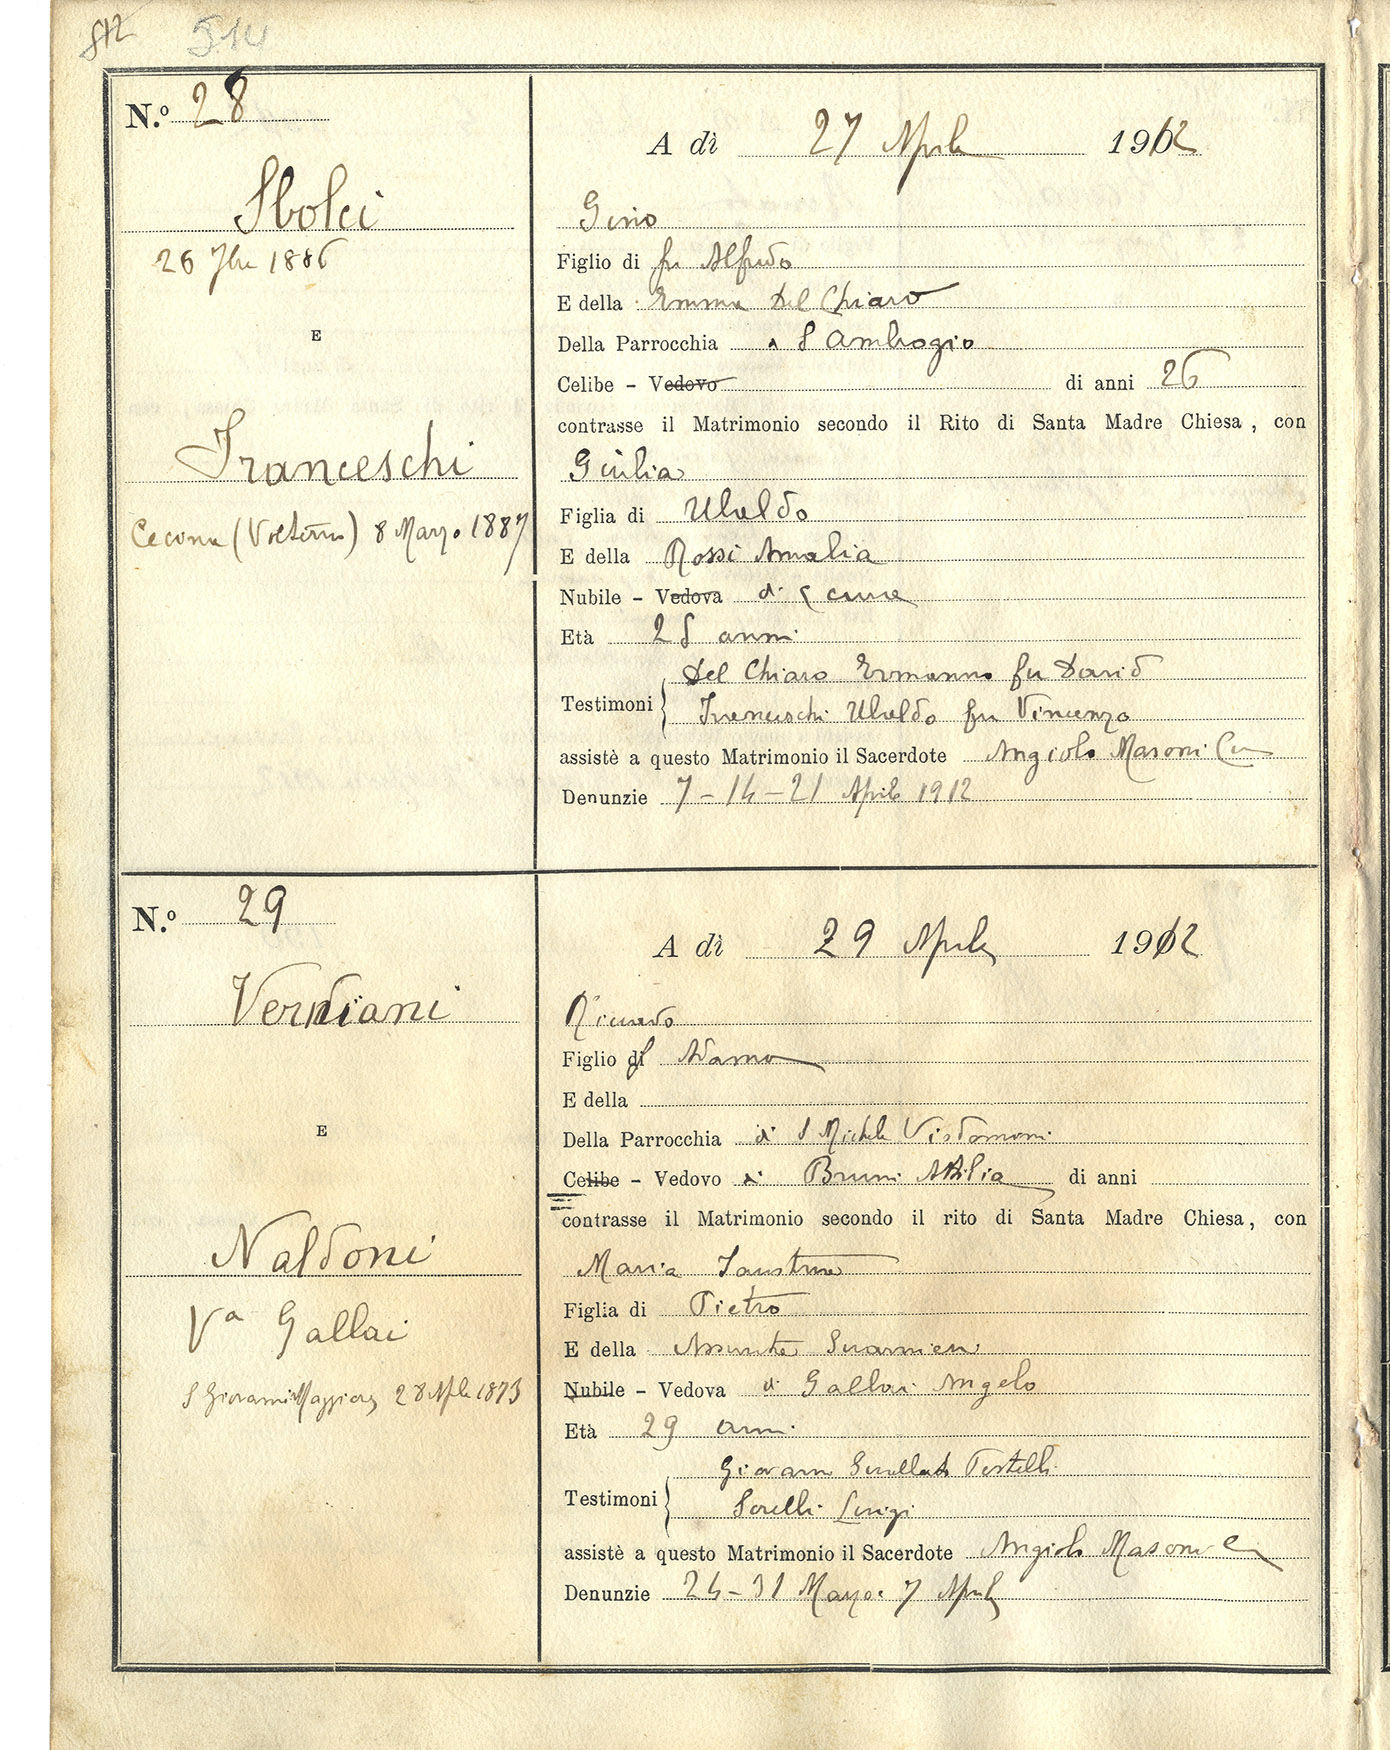 512 514
N.º 28
A dì 27 Aprile 1912
Sbolci
Gino
26 7bre 1886
Figlio di fu Alfredo
E della Emma Del Chiaro
E
Della Parrocchia S Ambrogio
Celibe - Vedovo di anni 26
contrasse il Matrimonio secondo il Rito di Santa Madre Chiesa, con
Franceschi
Giulia
Cecina (Volterra) 8 Marzo 1887
Figlia di Ubaldo
E della Rossi Amalia
Nubile - Vedova di cura
Età 25 anni
Testimoni { Del Chiaro Ermanno fu David
Franceschi Ubaldo fu Vincenzo
assistè a questo Matrimonio il Sacerdote Angiolo Masoni
Denunzie 7 - 14 - 21 Aprile 1912
N.º 29
A dì 29 Aprile 1912
Verdiani
Riccardo
Figlio di Adamo
E della
E
Della Parrocchia di S Michele Visdomini
Celibe - Vedovo di Bruni Attilia di anni
contrasse il Matrimonio secondo il rito di Santa Madre Chiesa, con
Naldoni
Maria Faustina
Vª Gallai
Figlia di Pietro
E della Assunta
S Giovanni Maggiore 28 Aple 1873
Nubile - Vedova di Gallai Angelo
Età 29 anni
Testimoni { Giovanni
Sorelli Luigi
assistè a questo Matrimonio il Sacerdote Angiolo Masoni
Denunzie 24 - 31 Marzo 7 Aprile